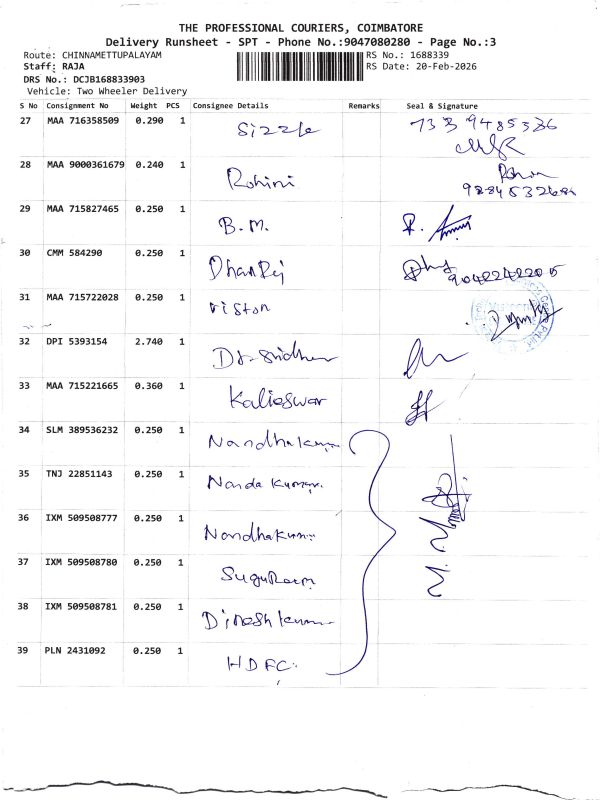 THE PROFESSIONAL COURIERS, COIMBATORE
Delivery Runsheet - SPT - Phone No.:9047080280 - Page No.:3
Route: CHINNAMETTUPALAYAM RS No.: 1688339
Staff: RAJA RS Date: 20-Feb-2026
DRS No.: DCJB168833903
Vehicle: Two Wheeler Delivery
S No Consignment No Weight PCS Consignee Details Remarks Seal & Signature
27 MAA 716358509 0.290 1 Sizzle
28 MAA 9000361679 0.240 1 Rohini
29 MAA 715827465 0.250 1 B.M.
30 CMM 584290 0.250 1 DhanRej 9042242205
31 MAA 715722028 0.250 1 Viston
32 DPI 5393154 2.740 1 Dr. Sridher
33 MAA 715221665 0.360 1 Kalieswar
34 SLM 389536232 0.250 1 Nandhakumar
35 TNJ 22851143 0.250 1 Nanda Kumar.
36 IXM 509508777 0.250 1 Nandhakumar
37 IXM 509508780 0.250 1 SuguRaam
38 IXM 509508781 0.250 1 Dineshkumar
39 PLN 2431092 0.250 1 HDFC.